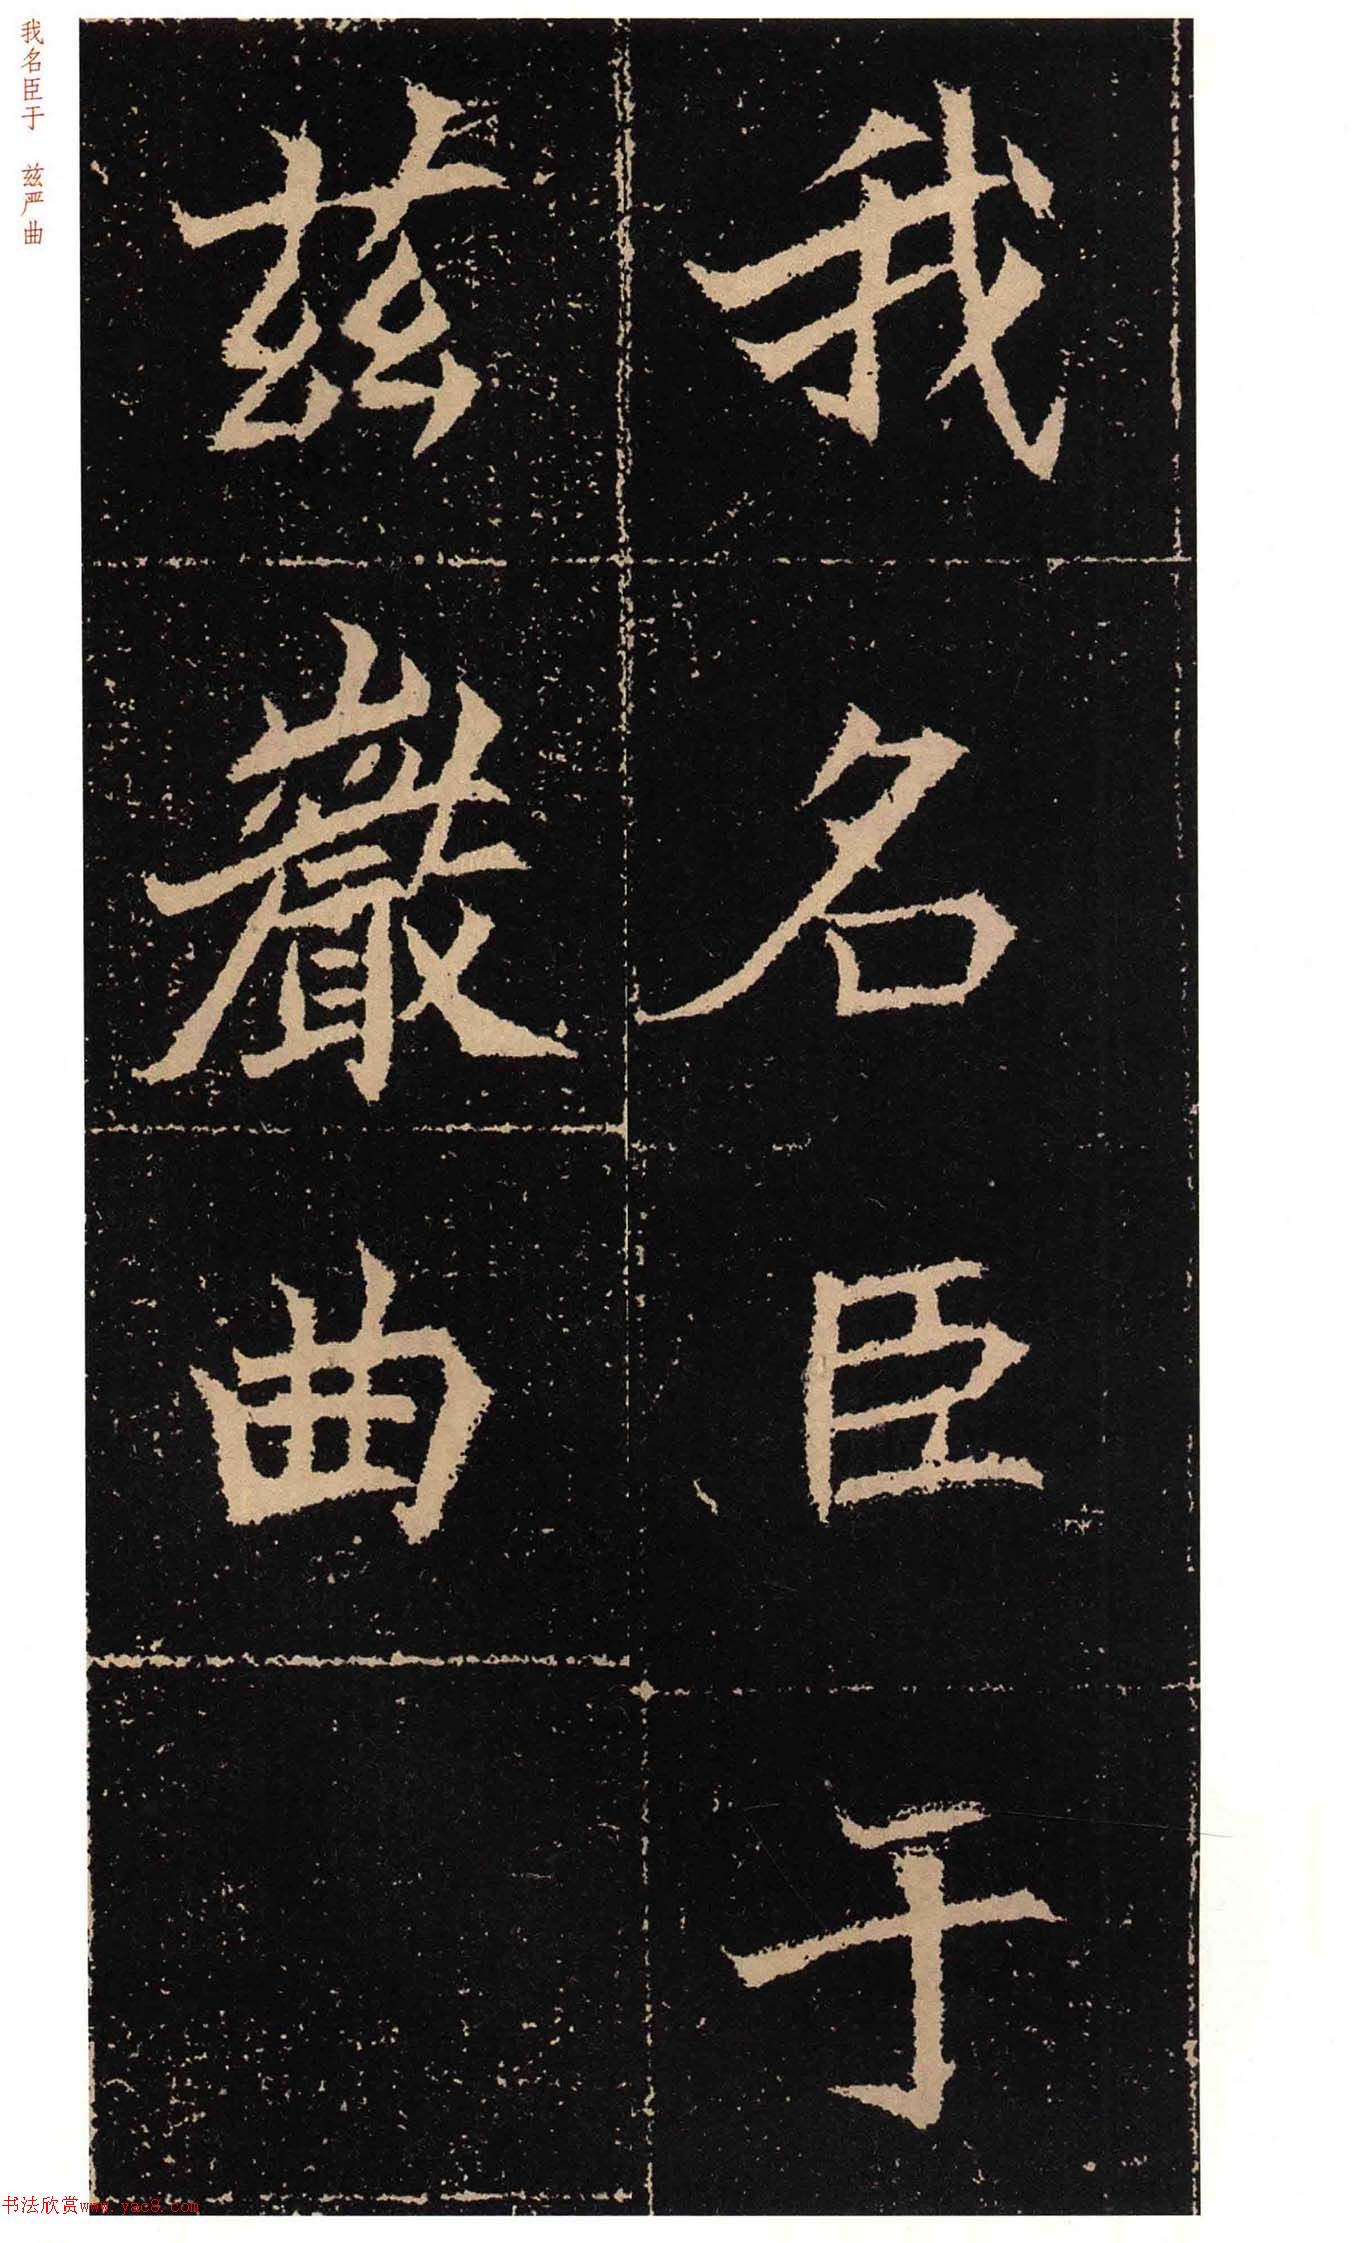 我名臣于
兹嚴曲
我名臣于 兹严曲
书法欣赏www.yac8.com